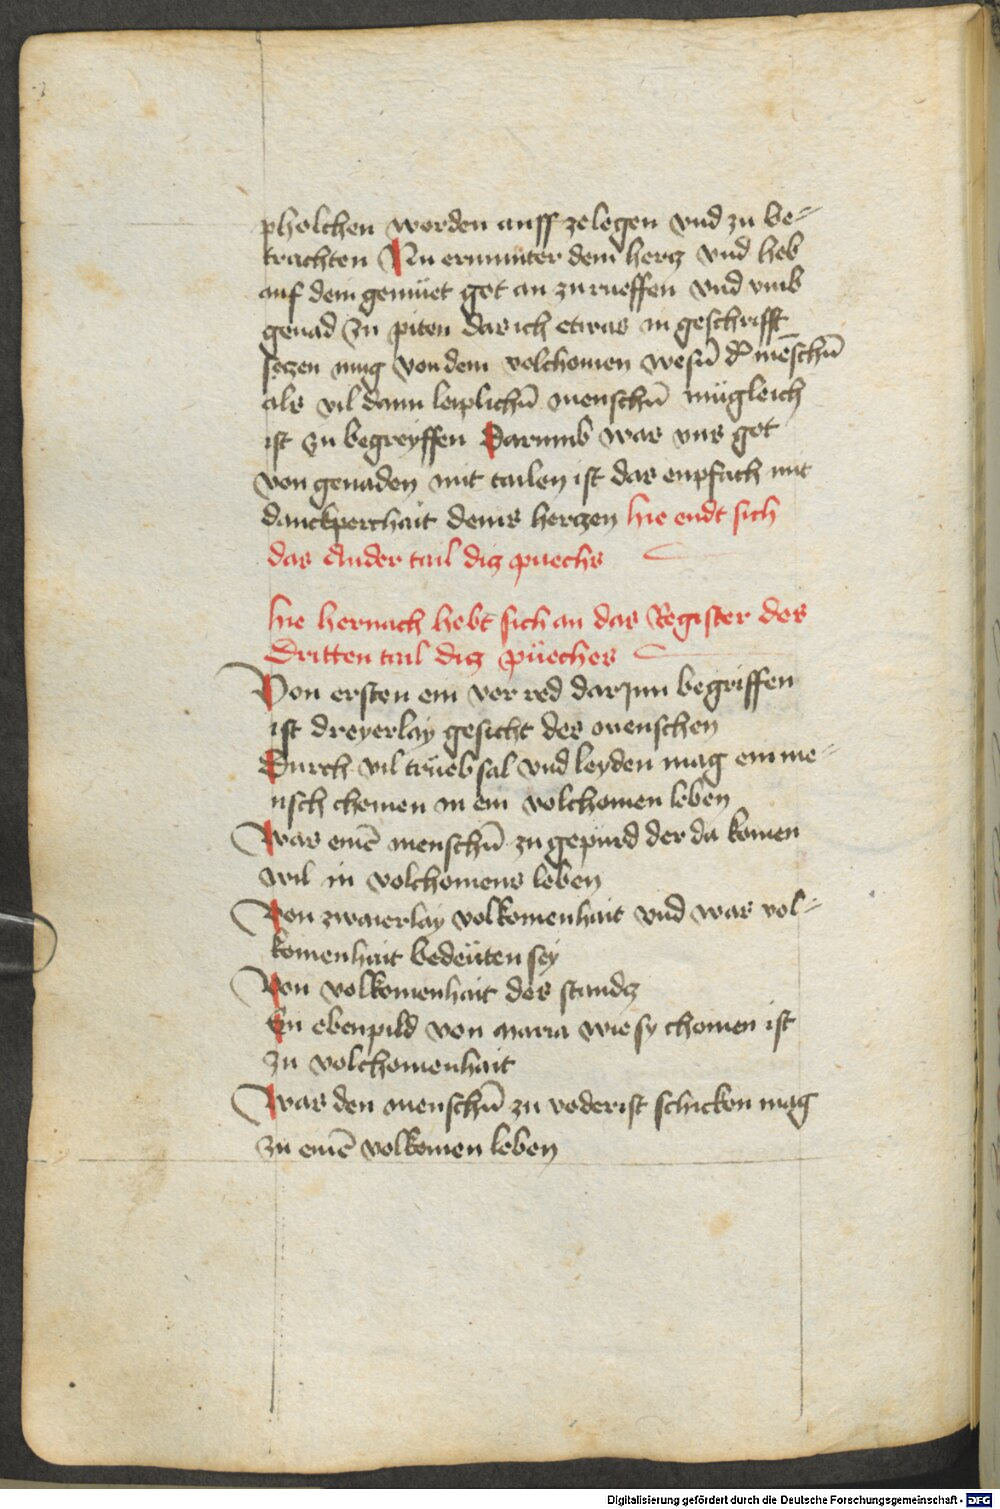 pholchen worden auff zelegen vnd zu be-
trachten Nu ermunter dein hercz vnd heb
auf dein gemüet got an zu rueffen vnd vmb
genad zu piten das ich etwas in geschrifft
seczen mug von dem volchomen wesn̄ d' mēschn̄
als vil dann leiplichn̄ menschn̄ mügleich
ist zu begreyffen Darumb was vns got
von genaden mit tailen ist das enpfach mit
danckperchait deins herczen hie endt sich
das Ander tail dicz puechs
hie hernach hebt sich an das Register des
Dritten tail dicz püeches
Von ersten ein vor red darjnn begriffen
ist dreyerlay gesicht des menschen
Durch vil trüebsal vnd leyden mag ein me-
nsch chomen in ein volchomen leben
Was einē menschn̄ zu gepürd der da komen
wil in volchomens leben
Von zwaierlay volkomenhait vnd was vol-
komenhait bedeüten sey
Von volkomenhait des standcz
Ein ebenpild von maria wie sy chomen ist
zu volchomenhait
Was den menschn̄ zu voderist schicken mag
zu einē volkomen leben
Digitalisierung gefördert durch die Deutsche Forschungsgemeinschaft - DFG